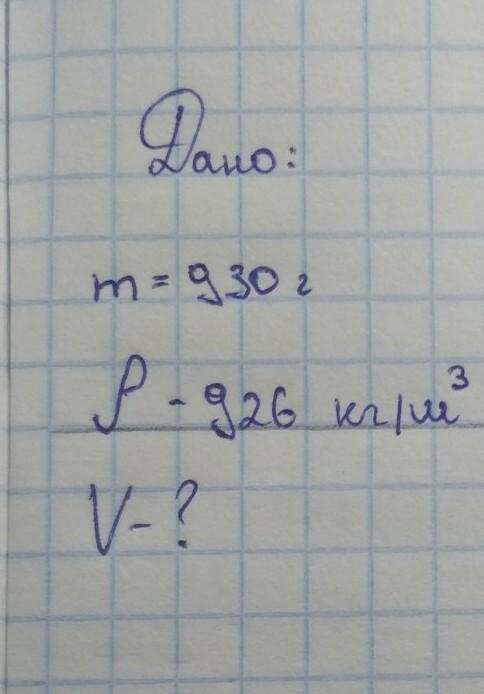 Дано:
m = 930 г
ρ - 926 кг/м³
V - ?